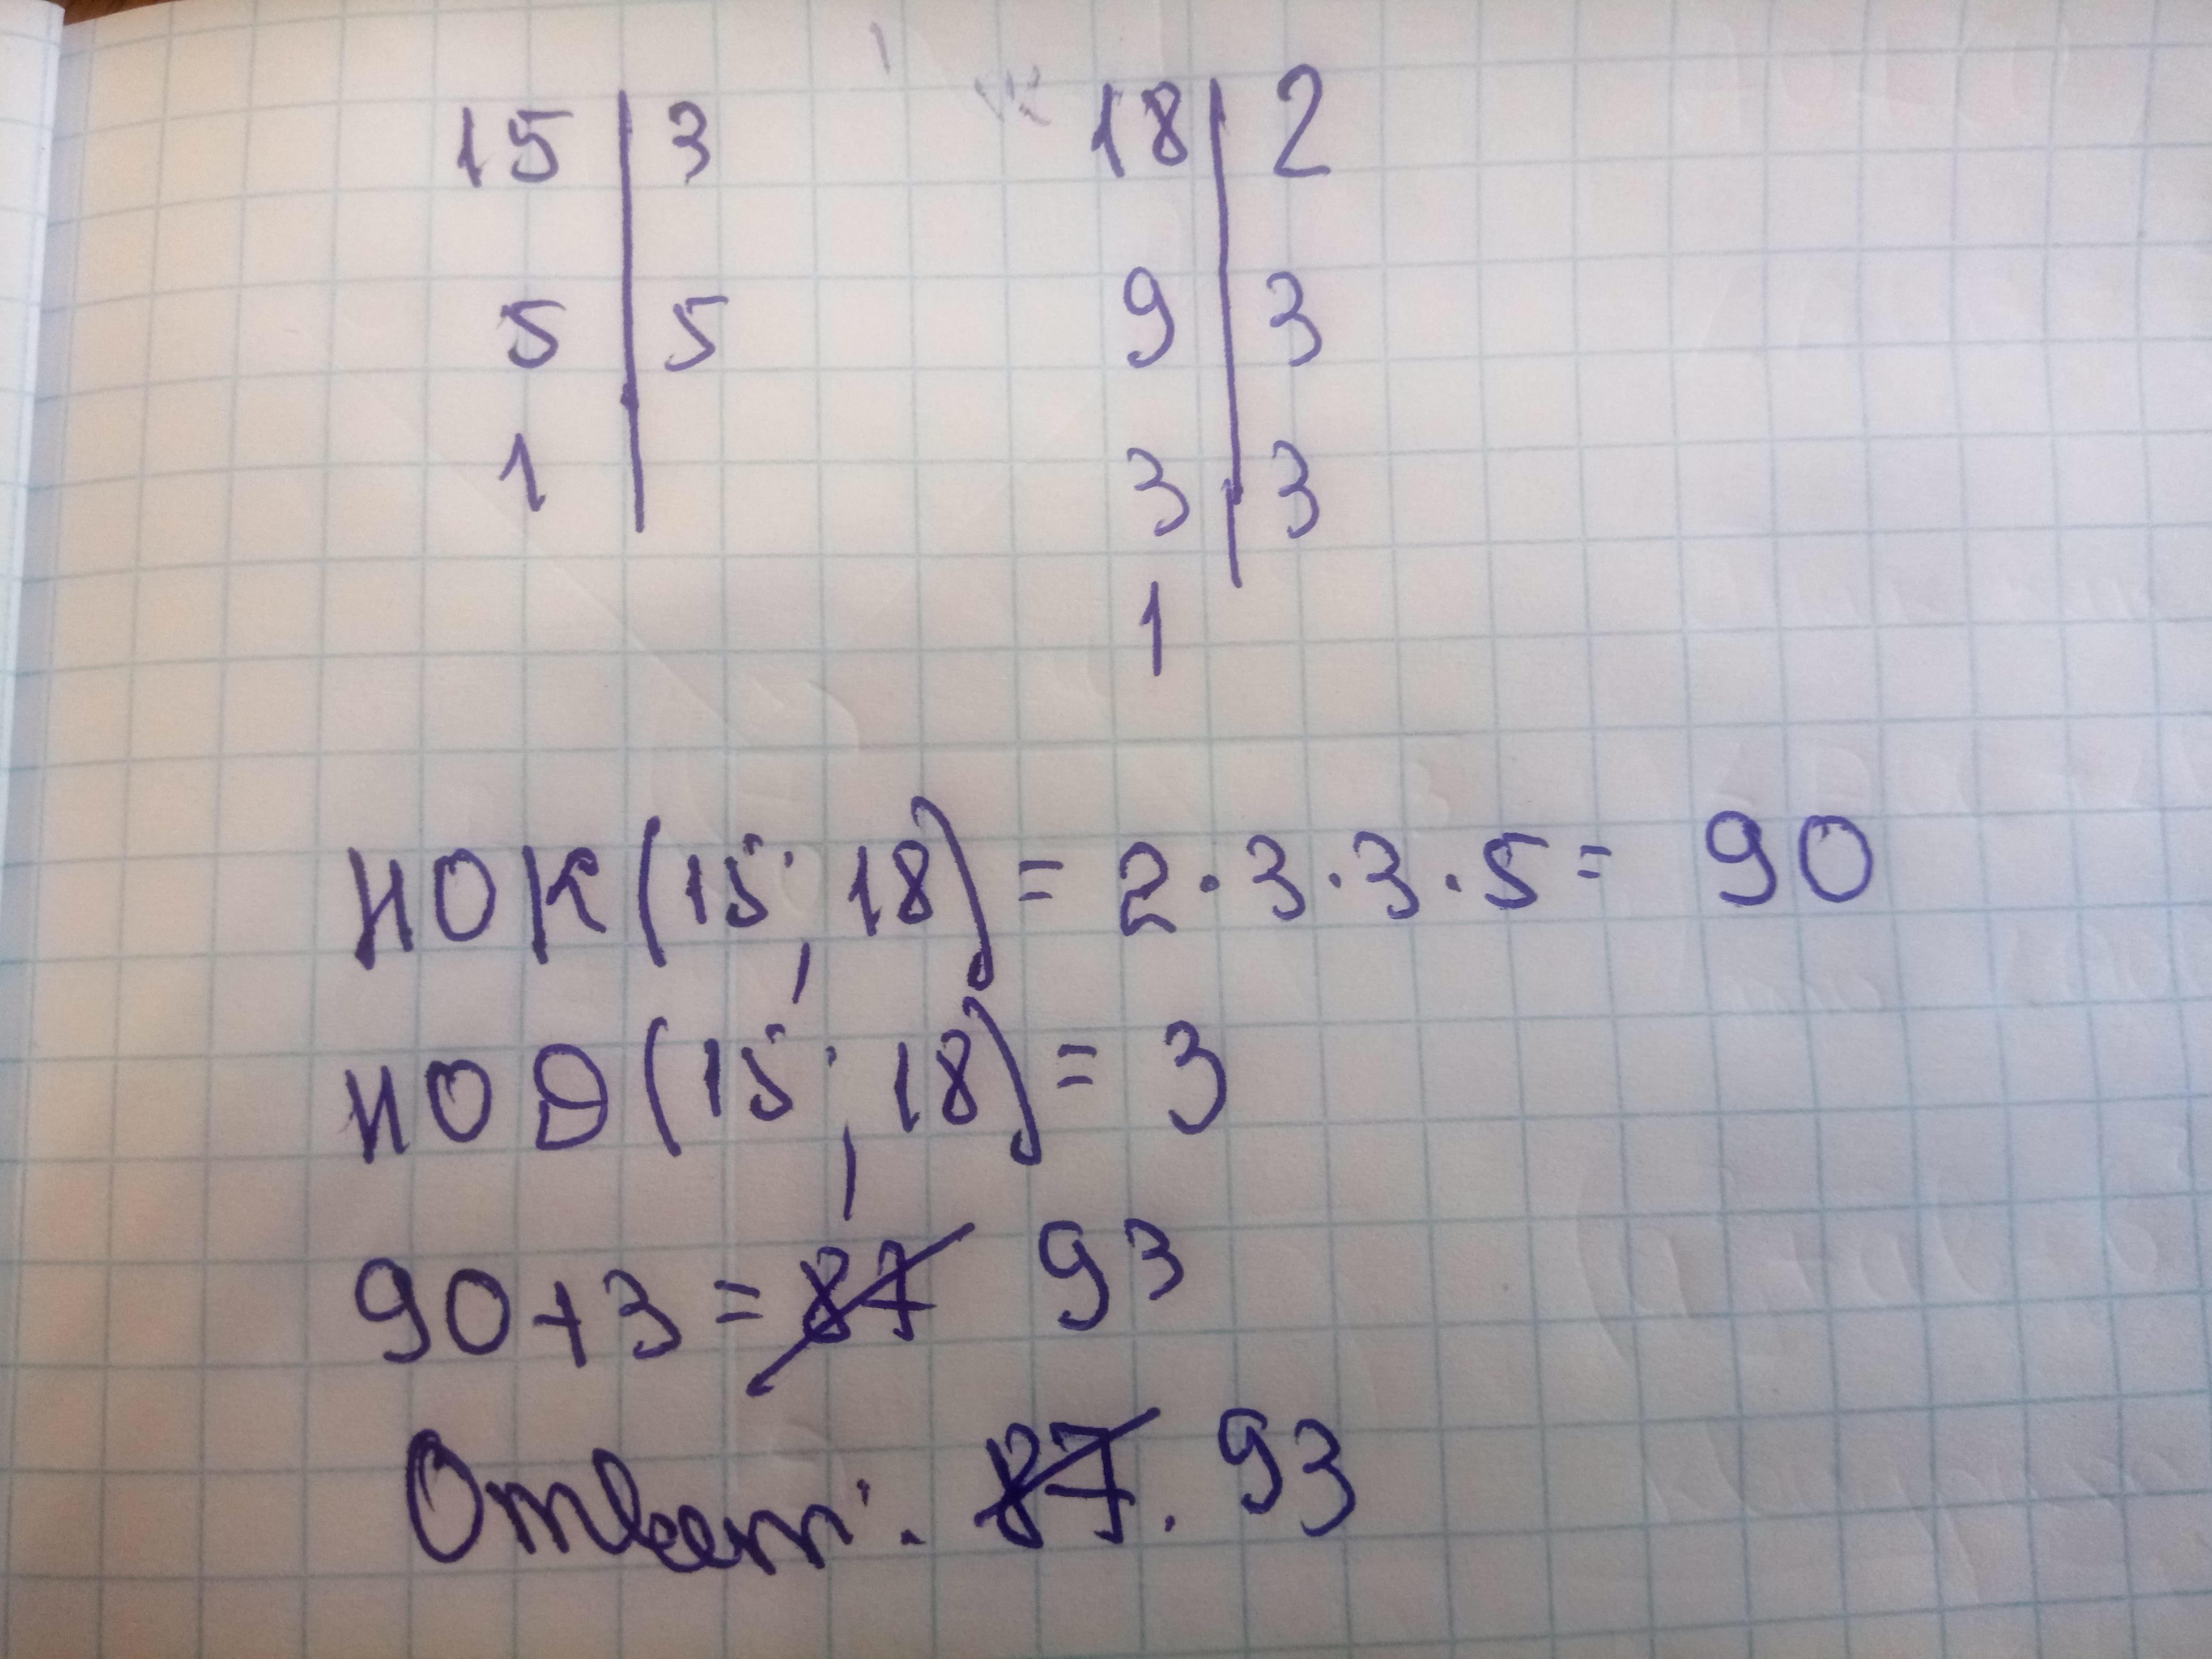 15 | 3 18 | 2
5 | 5 9 | 3
1 | 3 | 3
1
НОК(15; 18) = 2·3·3·5 = 90
НОД(15; 18) = 3
90+3 = 87 93
Ответ: 87. 93